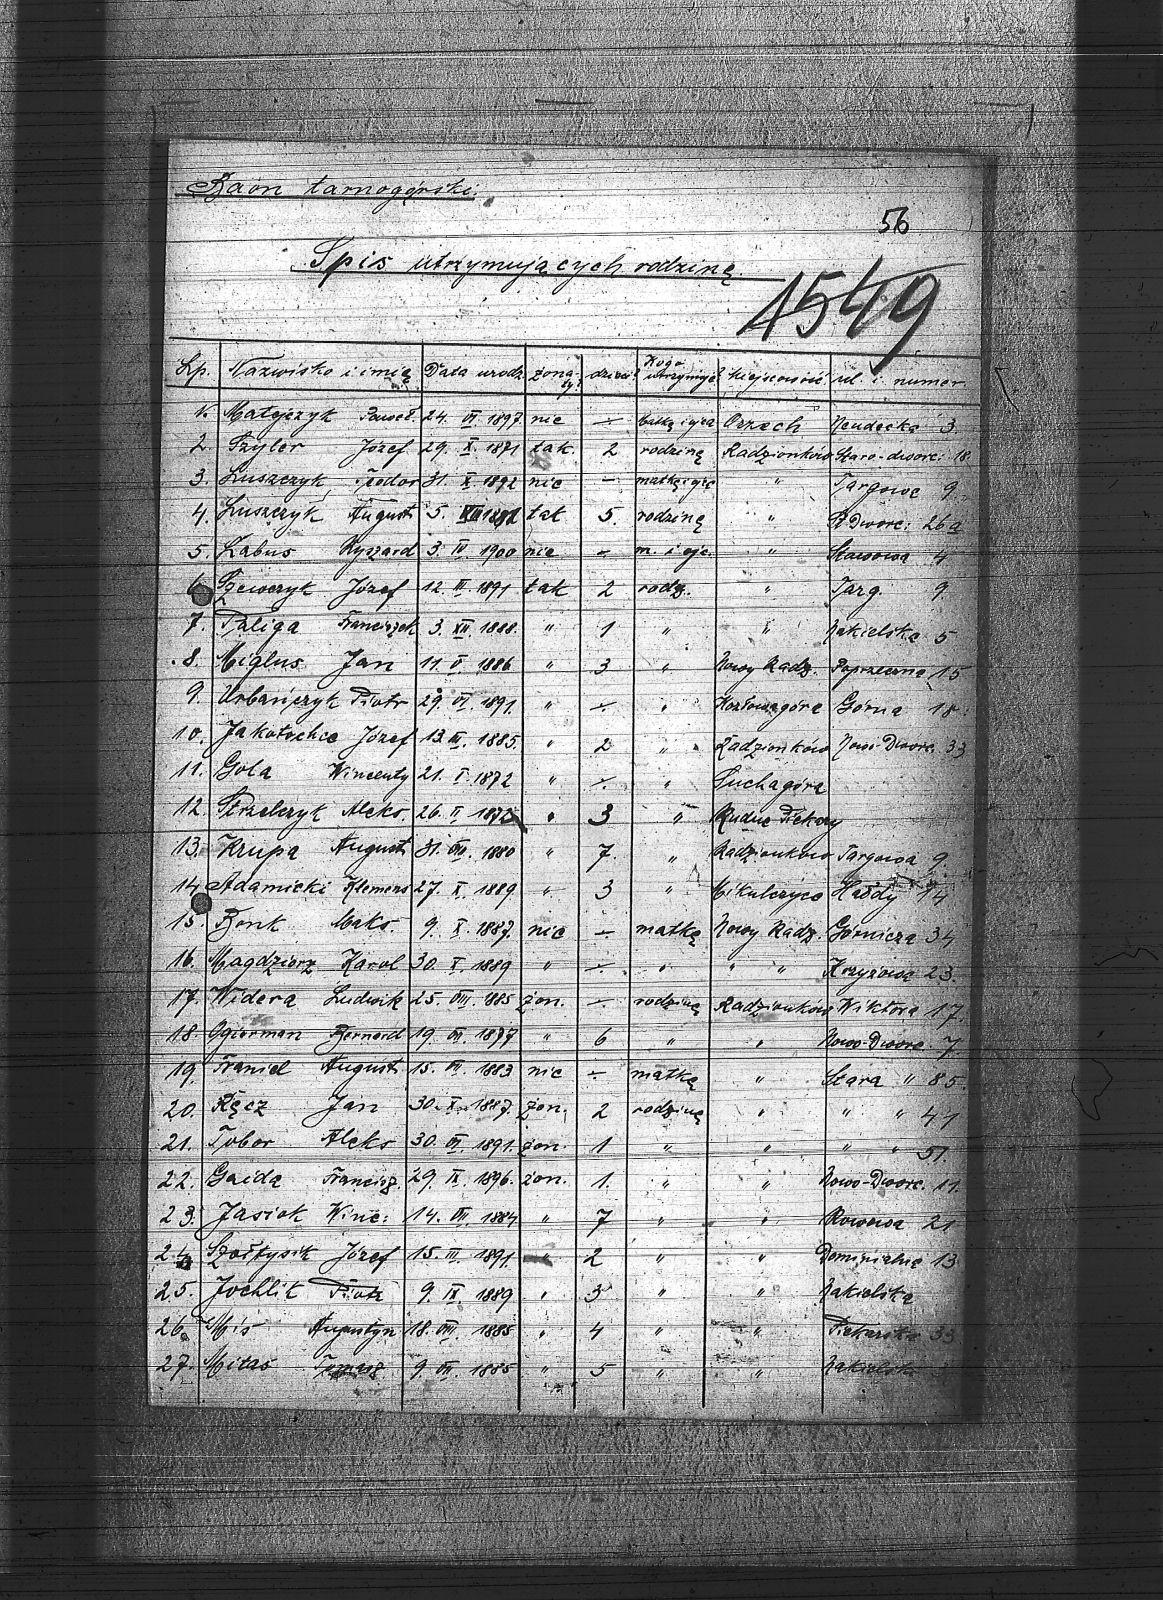 Baon tarnogórski.
56
Spis utrzymujących rodzinę
1549
Lp. Nazwisko i imię Data urodz. żonaty? dzieci? Kogo utrzymuje? Miejscowość ul. i. numer
1. Matejczyk Paweł 24. VI. 1897. nie – matkę i ojca Orzech Neudecka 3
2. Szyler Józef 29. X. 1871 tak. 2 rodzinę Radzionków Staro-dworc. 18
3. Łuszczyk Teodor 31. X. 1892 nie – matkę i ojc " Targowe 9.
4. Łuszczyk August 5. VIII tak 5. rodzinę " Dworc: 26a
5. Labus Ryszard 3. IV 1900 nie – m. i ojc. " Stawowa 4
6. Szewczyk Józef 12. III. 1891 tak 2 rodz. " Targ. 9.
7. Franciszek 3. XII. 1888. " 1 " " Nakielska 5
8. Miglus Jan 11. V 1886 " 3 " Nowy Radz. Poprzeczna 15
9. Urbańczyk Piotr 29. VI. 1891. " – " Kozłowagóra Górna 18
10. Józef 13. III. 1885. " 2 " Radzionków Nowo Dworc. 33
11. Gola Wincenty 21. I. 1872 " – " Suchagóra
12. Strzelczyk Aleks. 26. II " 3 " Rudne Piekary
13. Krupa August 31. VIII. 1880 " 7. " Radzionków Targowa 9.
14. Adamicki Klemens 27. X. 1889 " 3 " Mikulczyce Hałdy 14
15. Bonk Maks. 9. X. 1887. nie – matkę Nowy Radz. Górnicza 34
16. Magdziorz Karol 30. X. 1889 " – " " " Krzyżowa 23.
17. Widera Ludwik 25. VIII. 1885 żon. – rodzinę Radzionków Wiktora 17.
18. Ogierman Bernard 19. VII. 1877 " 6 " " Nowo-Dworc 7.
19. Franiel August 15. VII. 1883 nie – matkę " Stara " 85.
20. Ręcz Jan 30. X. 1887. żon. 2 rodzinę " " " 41
21. Tobor Aleks 30. VI. 1891. żon. 1 " " " " 51.
22. Gaida Francisz. 29. IX. 1896. żon. 1. " " Nowo-Dworc. 11.
23. Jasiok Winc: 14. VII. 1884 " 7 " " Rowowa 21
24. Szołtysik Józef 15. III. 1891. " 2 " " Dominialne 13
25. Jochlik Piotr 9. IX. 1889 " 3 " " Nakielska
26. Miś Augustyn 18. VIII. 1885 " 4 " " Piekarska 33
27. Mitas Tomasz 9. VII. 1885 " 5 " " Nakielska